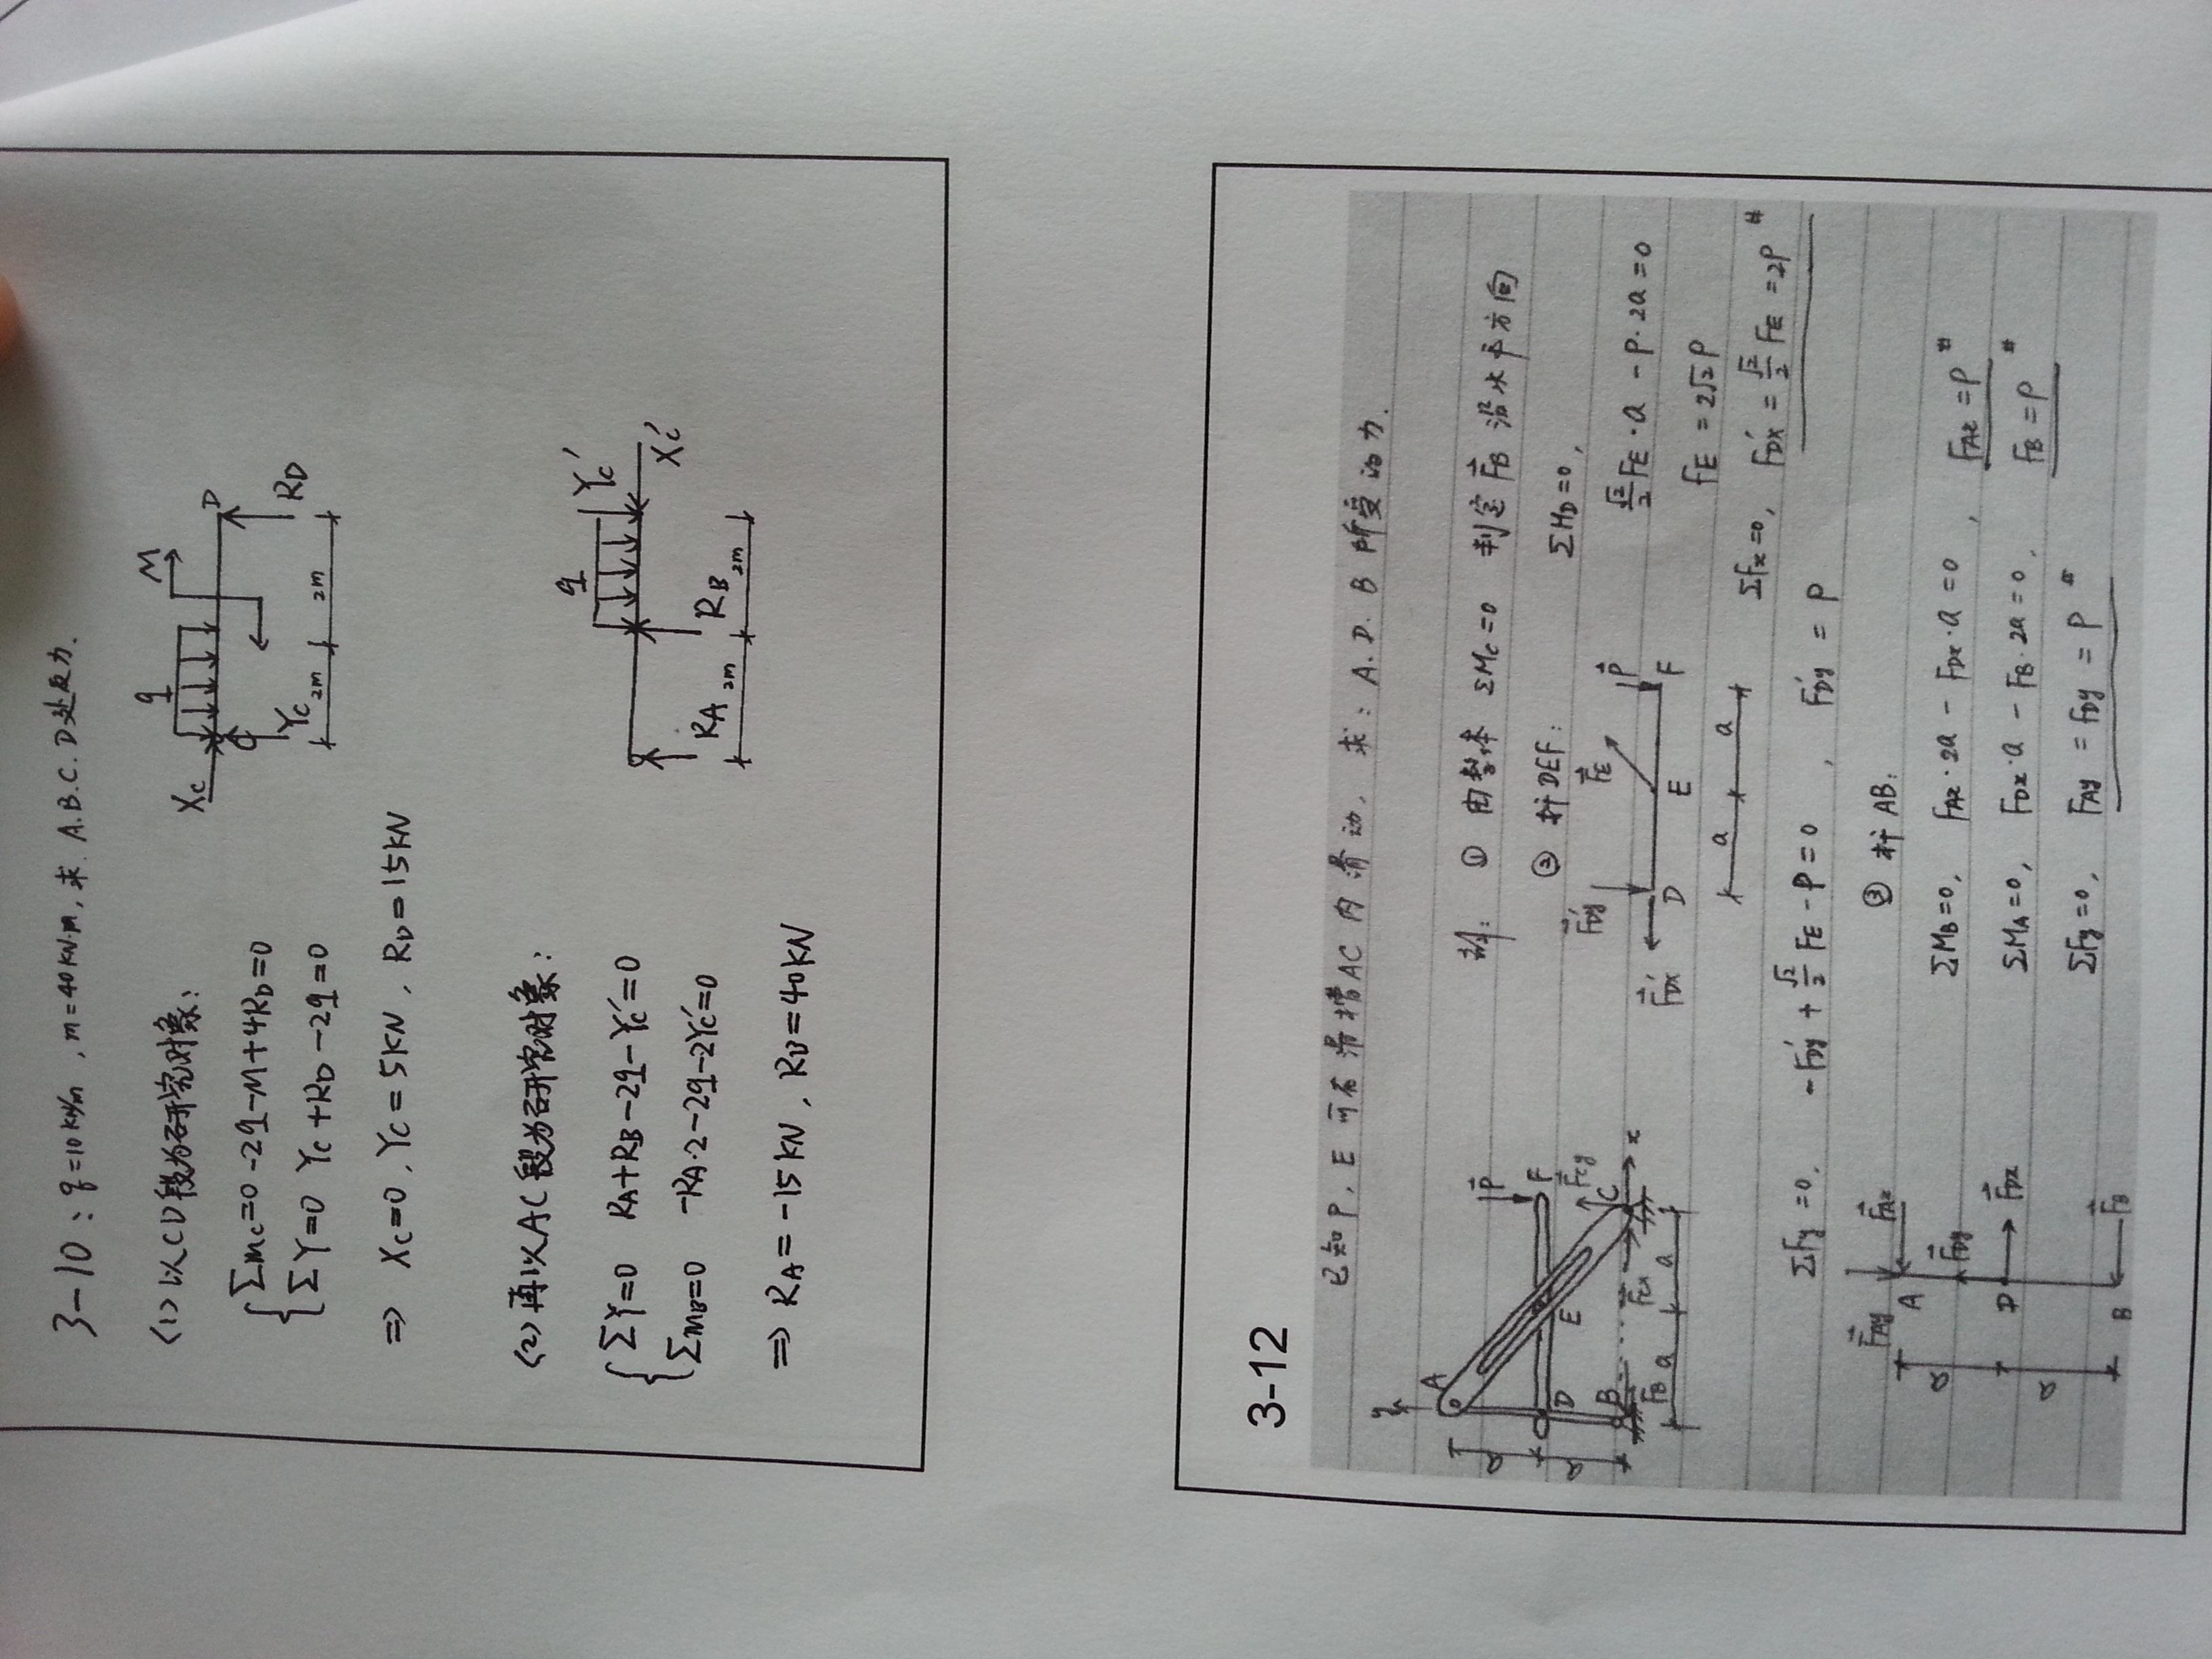 3-10: q=10kN/m, m=40kN·m, 求 A.B.C.D处反力.
(1) 以CD段为研究对象:
∑mc=0 -2q-M+4RD=0
∑Y=0 Yc+RD-2q=0
⇒ Xc=0, Yc=5KN, RD=15kN
q M
Xc D
C
Yc RD
2m 2m
(2) 再以AC段为研究对象:
∑Y=0 RA+RB-2q-Yc'=0
∑mB=0 -RA·2-2q-2Yc'=0
⇒ RA=-15kN, RB=40kN
q Yc'
Xc'
RA RB
2m 2m
3-12
已知P, E可在滑槽AC内滑动, 求: A.D.B所受的力.
y
A
a P
D E F
a FCy
B C x
FB FCx
a a
解: ① 由整体 ΣMC=0 判定FB沿水平方向
② 杆DEF: ΣMD=0,
F'Dy FE P
F'Dx D E F
a a
√2/2 FE·a - P·2a=0
FE = 2√2P
ΣFx=0, F'Dx = √2/2 FE = 2P #
ΣFy=0, -F'Dy + √2/2 FE - P = 0, F'Dy = P
FAy FAx
A
a FDy
D FDx
a
B FB
③ 杆AB:
ΣMB=0, FAx·2a - FDx·a = 0, FAx = P #
ΣMA=0, FDx·a - FB·2a = 0, FB = P #
ΣFy=0, FAy = FDy = P #